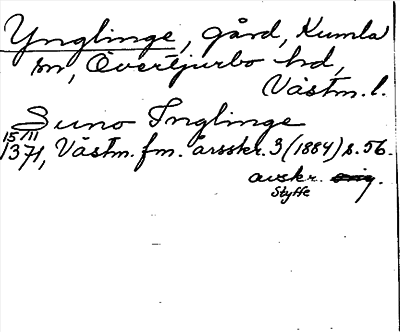 Ynglinge, gård, Kumla
sn, Övertjurbo hd,
Västm. l.
Suno Inglinge
15/11
1371, Västm. fm. årsskr. 3 (1884) s. 56.
avskr. orig.
Styffe